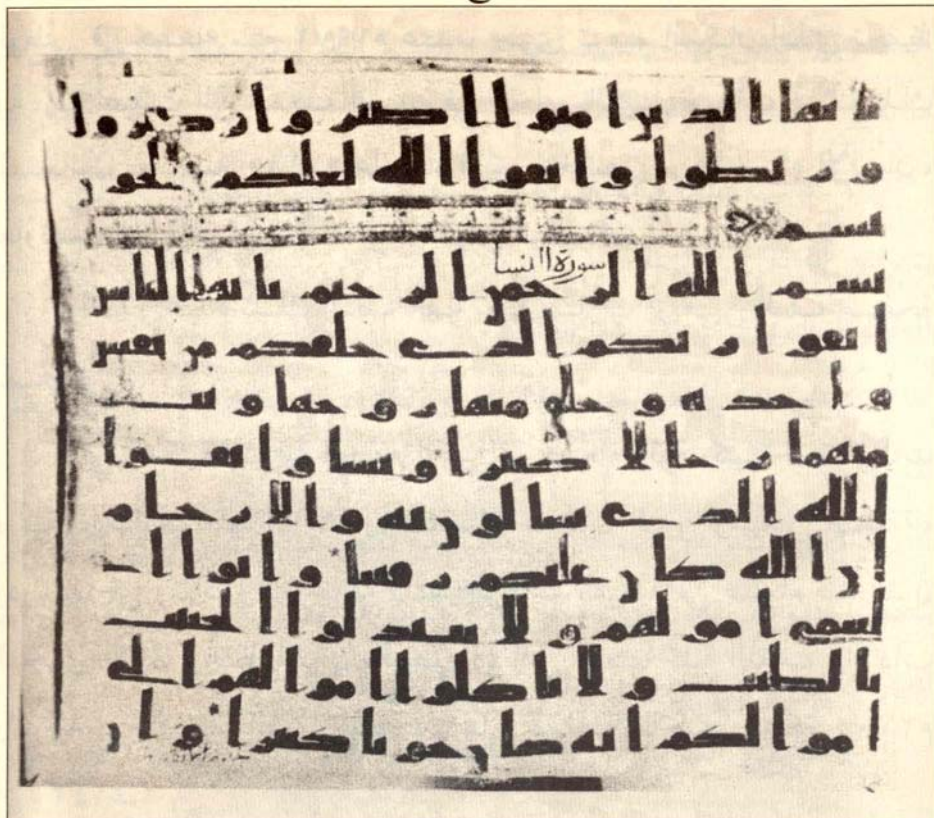 يايها الذين امنوا اصبروا وصبروا
وربطوا واتقوا الله لعلكم تفلحون
بسم
سورة النسا
بسم الله الرحمن الرحيم يايها الناس
اتقوا ربكم الذي خلقكم من نفس
واحدة وخلق منها زوجها وبث
منهما رجالا كثيرا ونسا واتقوا
الله الذي تسالون به والارحام
ان الله كان عليكم رقيبا واتوا ا
ليتمى امولهم ولا تتبدلوا الخبيث
بالطيب ولا تاكلوا اموالهم الى
اموالكم انه كان حوبا كبيرا وان